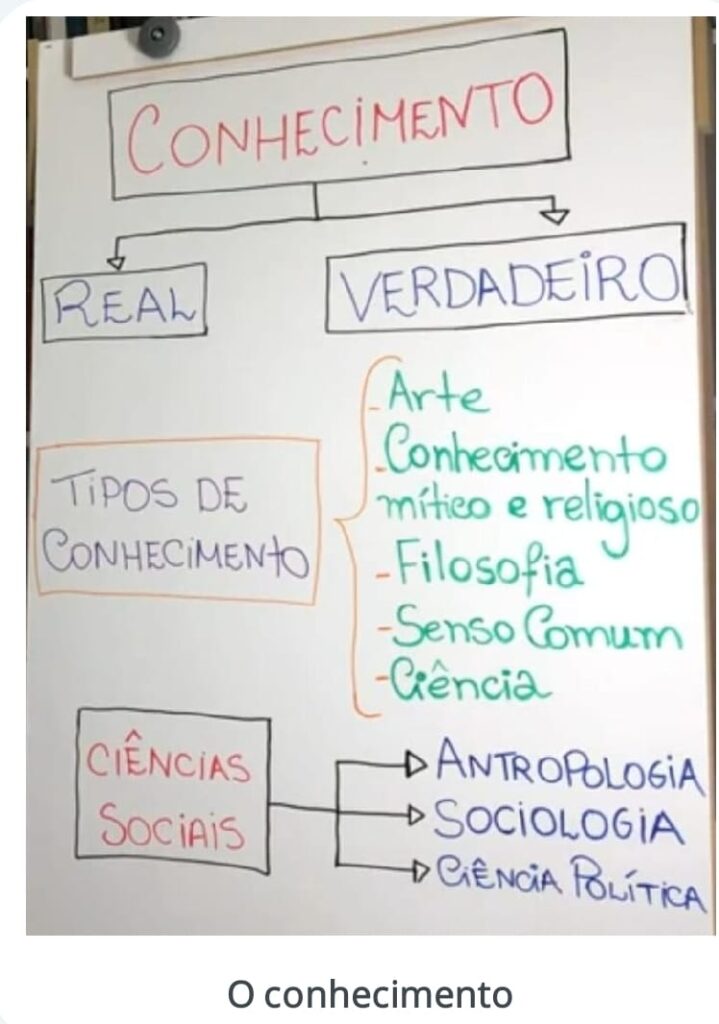 CONHECIMENTO
REAL
VERDADEIRO
TIPOS DE
CONHECIMENTO
- Arte
- Conhecimento
mítico e religioso
- Filosofia
- Senso Comum
- Ciência
CIÊNCIAS
SOCIAIS
ANTROPOLOGIA
SOCIOLOGIA
CIÊNCIA POLÍTICA
O conhecimento